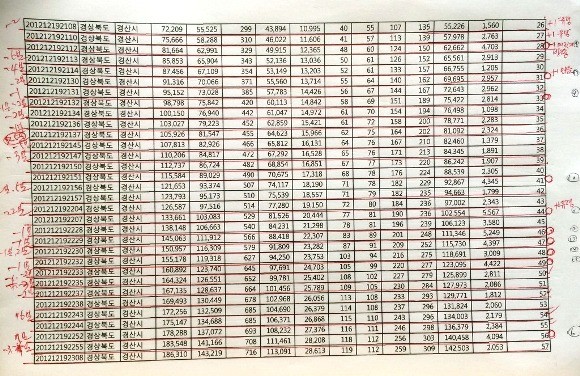 201212192108 경상북도 경산시 72,209 55,525 299 43,894 10,995 40 55 107 135 55,226 1,560 26
75,666 58,288 310 46,022 11,606 41 57 113 139 57,978 2,763 27
201212192111 경상북도 경산시 81,664 62,991 329 49,915 12,365 48 60 124 150 62,662 4,703 28
201212192113 경상북도 경산시 85,853 65,904 343 52,136 13,036 50 61 126 152 65,561 2,913 29
201212192114 경상북도 경산시 87,456 67,109 354 53,149 13,203 52 61 133 157 66,755 1,205 30
201212192130 경상북도 경산시 91,316 70,066 371 55,560 13,714 55 64 140 162 69,695 2,957 31
201212192131 경상북도 경산시 95,152 73,028 385 57,783 14,426 56 67 144 167 72,643 2,962 32
201212192132 경상북도 경산시 98,798 75,842 420 60,113 14,842 58 69 151 189 75,422 2,814 33
201212192134 경상북도 경산시 100,150 76,940 442 61,047 14,972 61 70 154 194 76,498 1,098 34
201212192136 경상북도 경산시 103,027 79,223 452 62,859 15,421 61 72 158 200 78,771 2,283 35
201212192137 경상북도 경산시 105,926 81,547 455 64,623 15,966 62 75 164 202 81,092 2,324 36
201212192145 경상북도 경산시 107,813 82,926 466 65,812 16,131 64 76 167 210 82,460 1,379 37
201212192147 경상북도 경산시 110,206 84,817 472 67,292 16,528 65 76 171 213 84,345 1,891 38
201212192150 경상북도 경산시 112,737 86,724 482 68,854 16,851 67 77 170 223 86,242 1,907 39
201212192151 경상북도 경산시 115,584 89,029 490 70,675 17,318 68 78 176 224 88,539 2,305 40
201212192156 경상북도 경산시 121,653 93,374 507 74,117 18,190 71 78 182 229 92,867 4,345 41
201212192157 경상북도 경산시 123,793 95,173 510 75,539 18,557 71 79 182 235 94,663 1,799 42
201212192204 경상북도 경산시 126,587 97,516 514 77,280 19,150 72 80 184 236 97,002 2,343 43
201212192207 경상북도 경산시 133,661 103,083 529 81,526 20,444 77 81 190 236 102,554 5,567 44
201212192228 경상북도 경산시 138,148 106,663 540 84,231 21,298 78 81 196 239 106,123 3,580 45
201212192229 경상북도 경산시 145,063 111,912 566 88,418 22,307 83 89 201 248 111,346 5,249 46
201212192230 경상북도 경산시 150,957 116,309 579 91,809 23,282 87 91 209 252 115,730 4,397 47
201212192232 경상북도 경산시 155,178 119,318 627 94,250 23,753 103 94 216 275 118,691 3,009 48
201212192233 경상북도 경산시 160,892 123,740 645 97,691 24,703 105 99 220 277 123,095 4,422 49
201212192235 경상북도 경산시 164,324 126,551 652 99,781 25,402 108 102 227 279 125,899 2,811 50
201212192237 경상북도 경산시 167,135 128,637 664 101,456 25,789 109 105 230 284 127,973 2,086 51
201212192238 경상북도 경산시 169,493 130,449 678 102,968 26,056 113 108 233 293 129,771 1,812 52
201212192243 경상북도 경산시 172,256 132,509 685 104,690 26,379 114 108 237 296 131,824 2,060 53
201212192244 경상북도 경산시 175,147 134,688 685 106,371 26,868 115 110 243 296 134,003 2,179 54
201212192252 경상북도 경산시 178,288 137,072 693 108,232 27,376 116 111 246 298 136,379 2,384 55
201212192255 경상북도 경산시 183,548 141,166 708 111,461 28,208 118 112 256 303 140,458 4,094 56
201212192308 경상북도 경산시 186,310 143,219 716 113,091 28,613 119 112 259 309 142,503 2,053 57